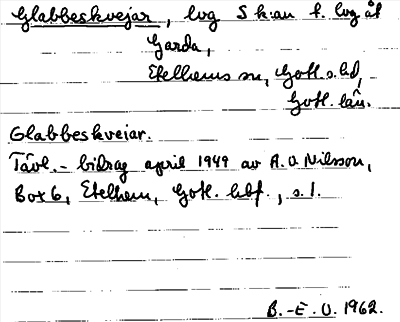 Glabbeskvejar, lvg S k:an t. lvg åt
Garda,
Etelhems sn, Gotl. s. hd,
Gotl. län.
Glabbeskveiar.
Tävl.- bidrag april 1949 av A. O Nilsson,
Box 6, Etelhem, Gotl. hbf., s. 1.
B.-E. O. 1962.